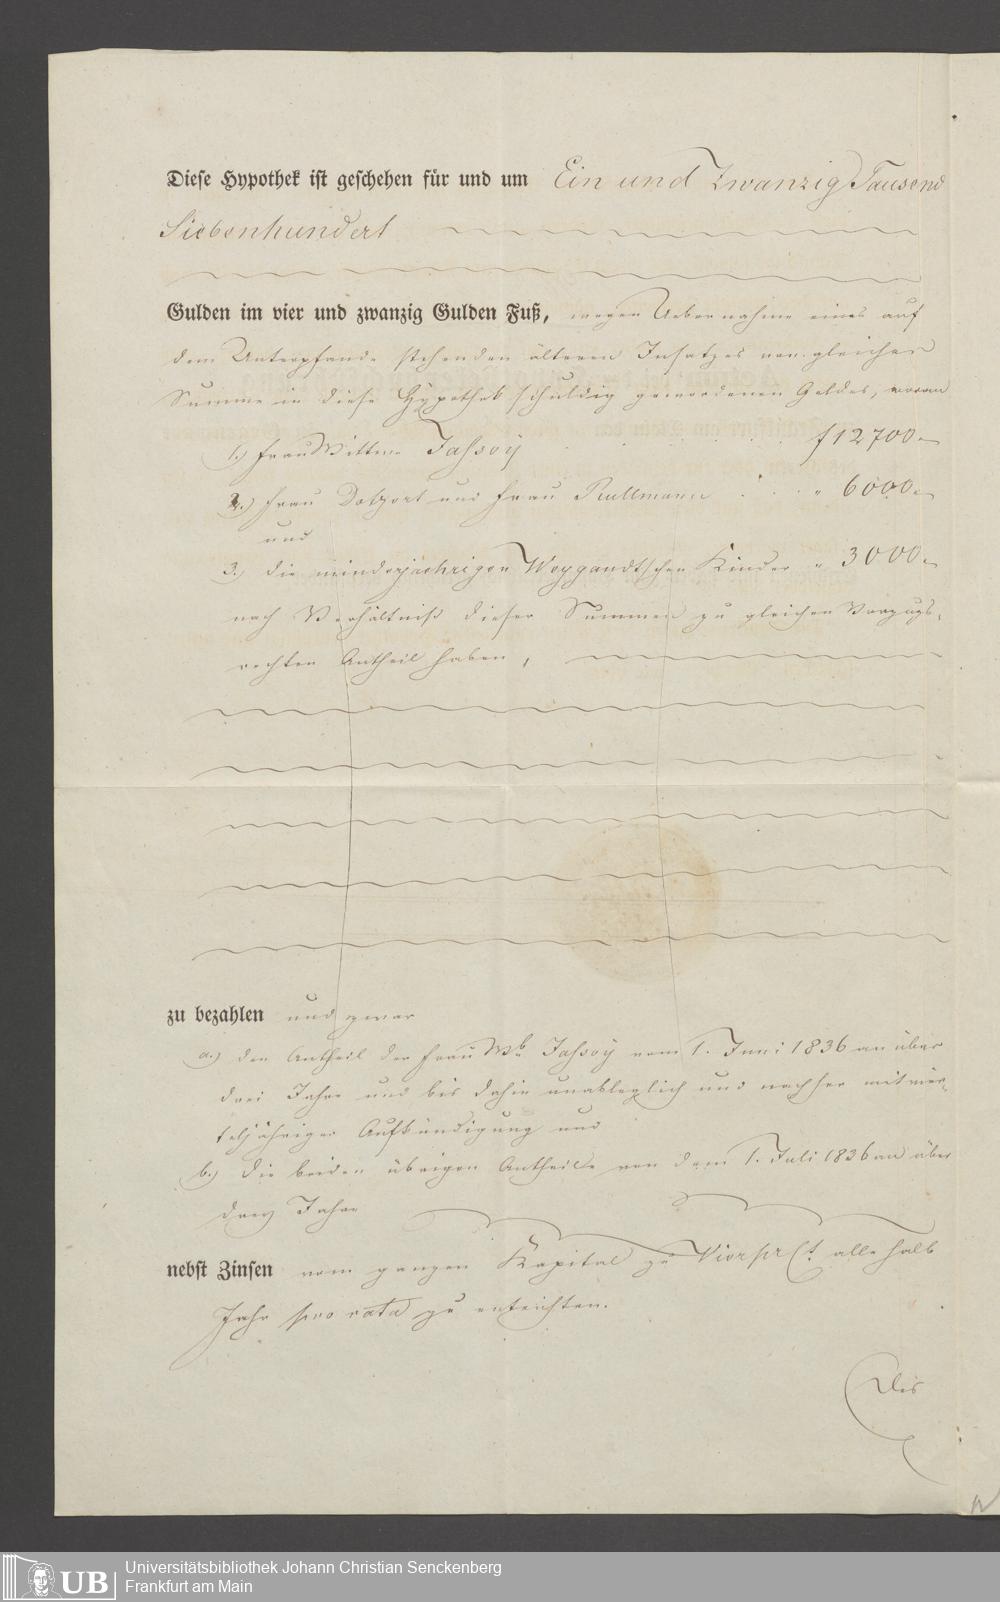 Diese Hypothek ist geschehen für und um Ein und Zwanzig Tausend
Siebenhundert
Gulden im vier und zwanzig Gulden Fuß, wegen Uebernahme eines auf
dem Unterpfande stehenden älteren Insatzes von gleicher
Summe in diese Hypothek schuldig gewordenen Geldes, woran
1.) Frau Wittwe Jassoy f 12700.–
2.) Frau und Frau Rullmann " 6000.–
und
3.) die minderjaehrigen Weygandt'schen Kinder " 3000.–
nach Verhältniß dieser Summen zu gleichen Vorzugs-
rechten Antheil haben,
zu bezahlen und zwar
a.) den Antheil der Frau Wb Jassoy vom 1. Juni 1836 an über
drei Jahre und bis dahin unableglich und nachher mit vier-
teljähriger Aufkündigung und
b.) die beiden übrigen Antheile von dem 1. Juli 1836 an über
drey Jahre
nebst Zinsen vom ganzen Kapital zu Vier pr Ct. alle halb
Jahr pro rata zu entrichten.
Des
UB
Universitätsbibliothek Johann Christian Senckenberg
Frankfurt am Main